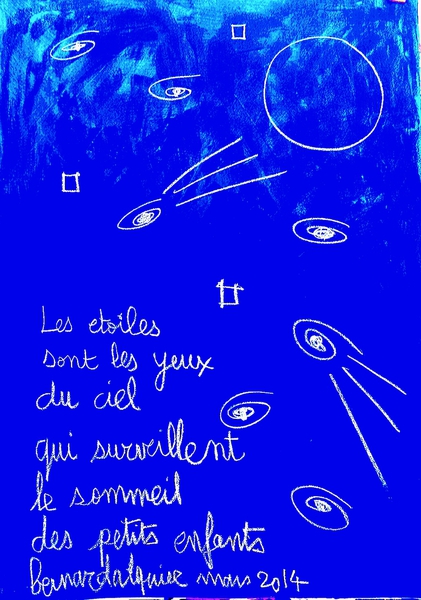 Les etoiles
sont les yeux
du ciel
qui surveillent
le sommeil
des petits enfants
bernard alquier mars 2014